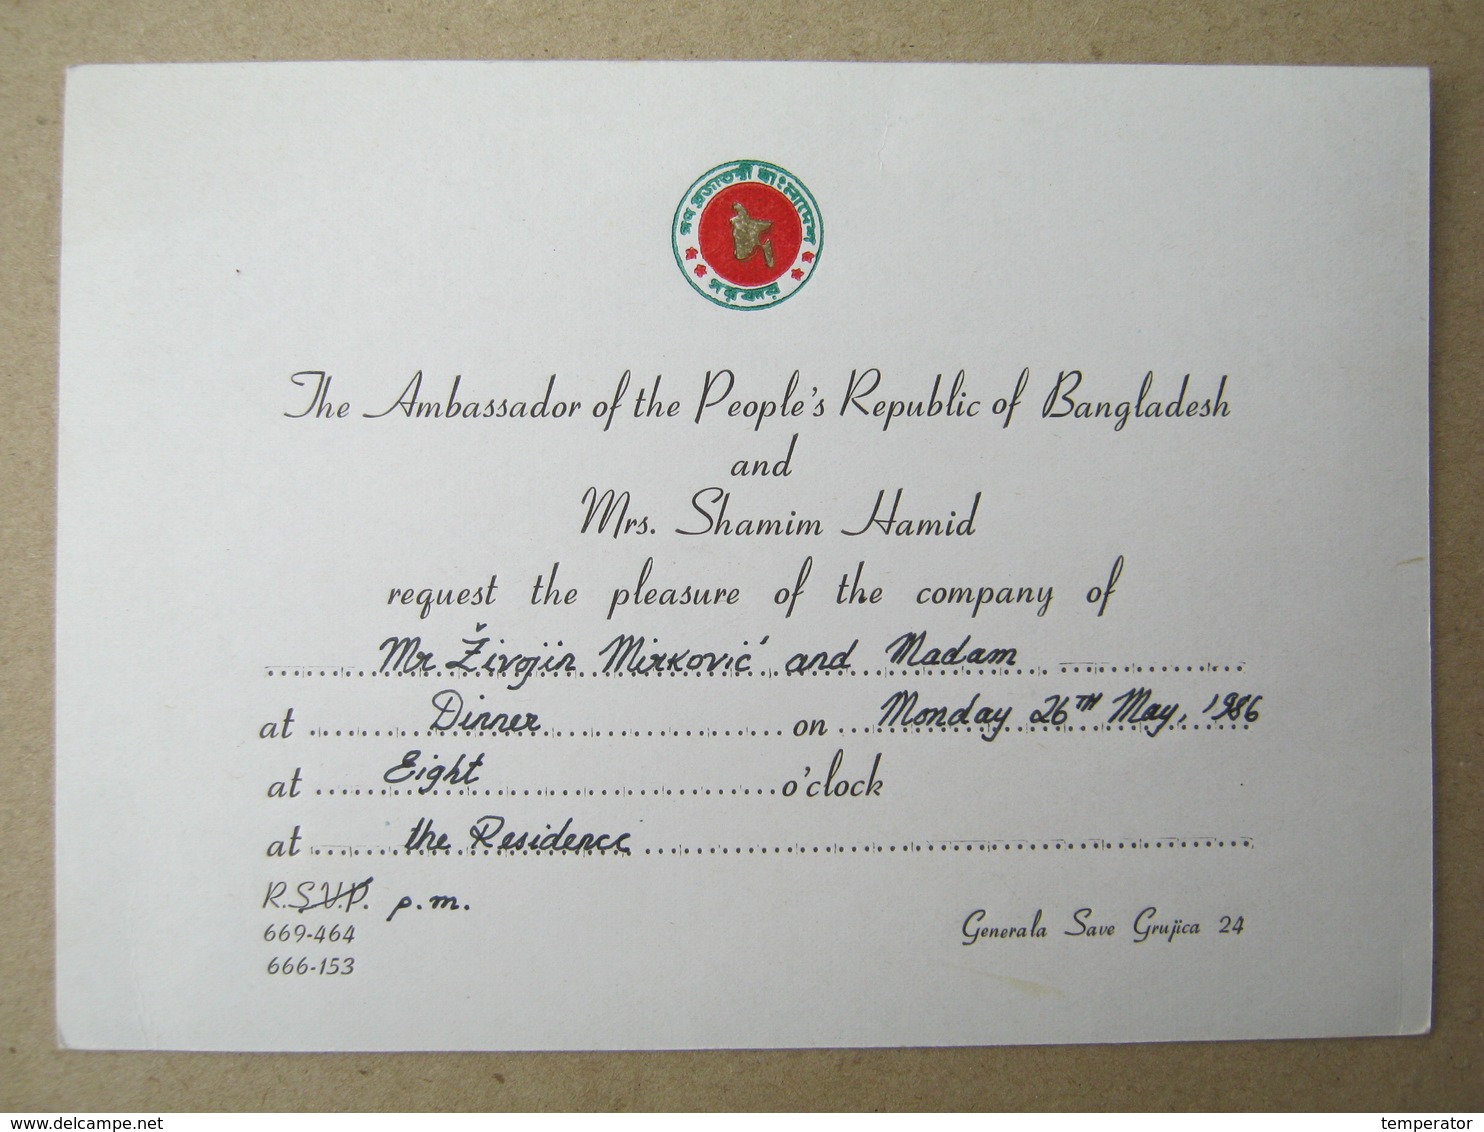 গণপ্রজাতন্ত্রী বাংলাদেশ
সরকার
The Ambassador of the People's Republic of Bangladesh
and
Mrs. Shamim Hamid
request the pleasure of the company of
Mr Živojin Mirković and Madam
at Dinner on Monday 26TH May, 1986
at Eight o'clock
at the Residence
R.S.V.P. p.m.
669-464
666-153
Generala Save Grujica 24
delcampe.net
temperator